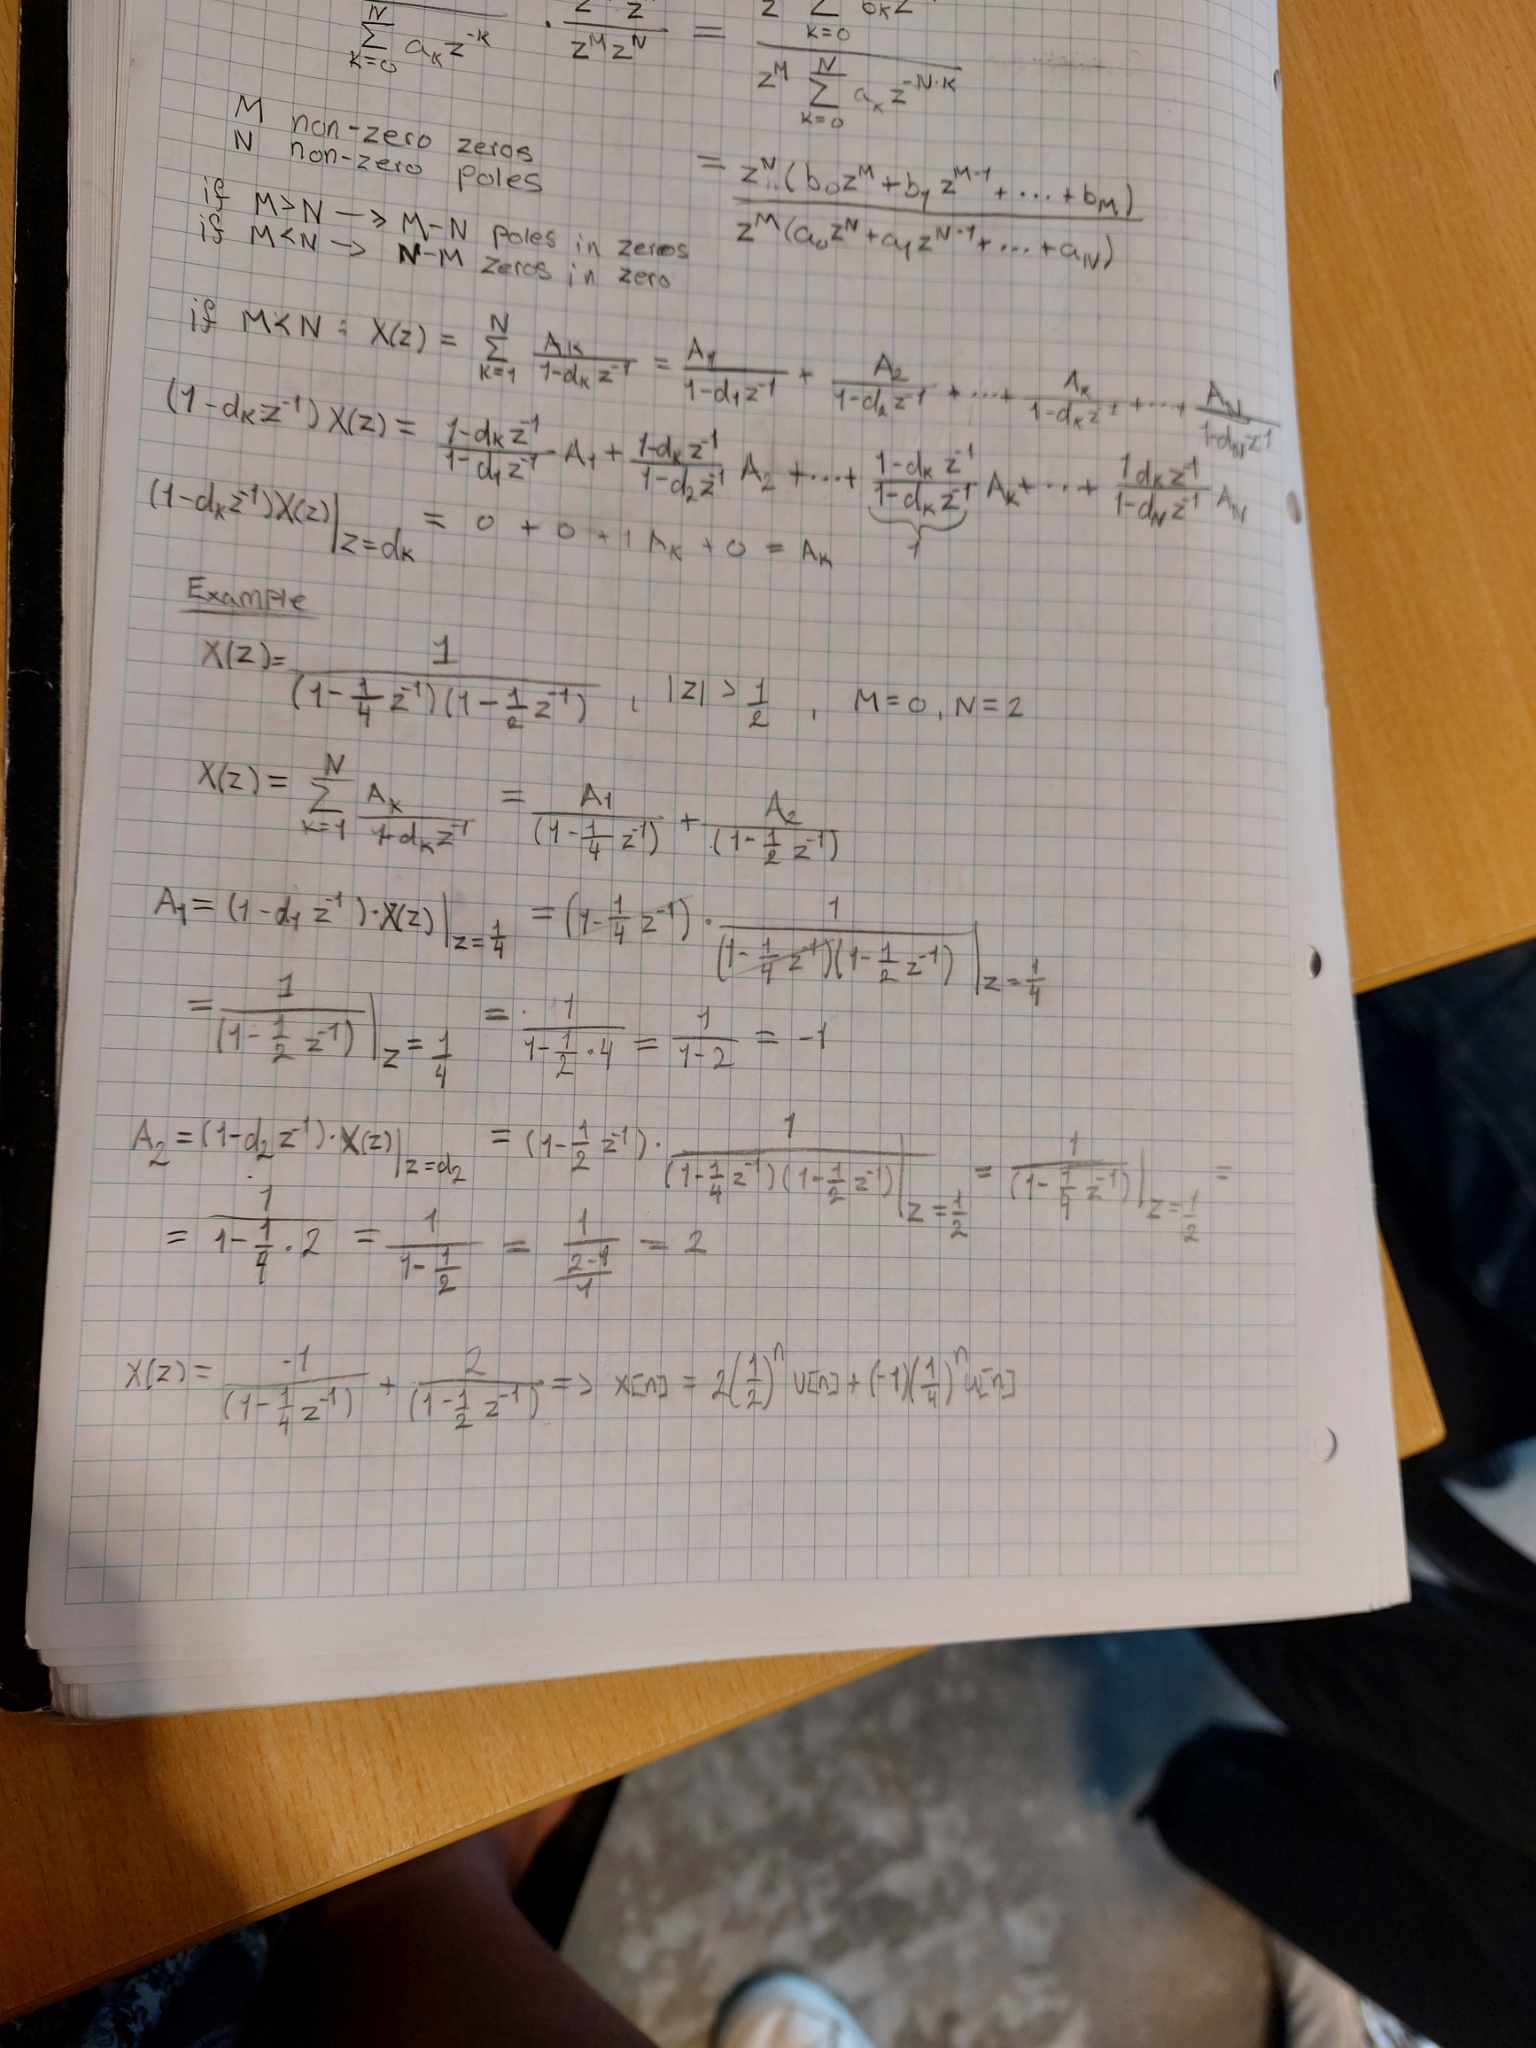 ∑_{k=0}^{N} a_k z^{-k} · z^M z^N = z ∑_{k=0} b_k z
z^M ∑_{k=0}^{N} a_k z^{-N-k}
M non-zero zeros
N non-zero poles
= z^N (b_0 z^M + b_1 z^{M-1} + ... + b_M) / z^M (a_0 z^N + a_1 z^{N-1} + ... + a_N)
if M>N → M-N poles in zeros
if M<N → N-M zeros in zero
if M<N : X(z) = ∑_{k=1}^{N} A_k/(1-d_k z^{-1}) = A_1/(1-d_1 z^{-1}) + A_2/(1-d_2 z^{-1}) + ... + A_k/(1-d_k z^{-1}) + ... + A_N/(1-d_N z^{-1})
(1-d_k z^{-1}) X(z) = (1-d_k z^{-1})/(1-d_1 z^{-1}) A_1 + (1-d_k z^{-1})/(1-d_2 z^{-1}) A_2 + ... + (1-d_k z^{-1})/(1-d_k z^{-1}) A_k + ... + (1 d_k z^{-1})/(1-d_N z^{-1}) A_N
(1-d_k z^{-1}) X(z)|_{z=d_k} = 0 + 0 + 1 A_k + 0 = A_k 1
Example
X(z) = 1/((1-1/4 z^{-1})(1-1/2 z^{-1})) , |z| > 1/2 , M=0, N=2
X(z) = ∑_{k=1}^{N} A_k/(1-d_k z^{-1}) = A_1/(1-1/4 z^{-1}) + A_2/(1-1/2 z^{-1})
A_1 = (1-d_1 z^{-1})·X(z)|_{z=1/4} = (1-1/4 z^{-1}) · 1/((1-1/4 z^{-1})(1-1/2 z^{-1}))|_{z=1/4}
= 1/(1-1/2 z^{-1})|_{z=1/4} = 1/(1-1/2·4) = 1/(1-2) = -1
A_2 = (1-d_2 z^{-1})·X(z)|_{z=d_2} = (1-1/2 z^{-1}) · 1/((1-1/4 z^{-1})(1-1/2 z^{-1}))|_{z=1/2} = 1/(1-1/4 z^{-1})|_{z=1/2} =
= 1/(1-1/4·2) = 1/(1-1/2) = 1/((2-1)/1) = 2
X(z) = -1/(1-1/4 z^{-1}) + 2/(1-1/2 z^{-1}) => x[n] = 2(1/2)^n u[n] + (-1)(1/4)^n u[n]